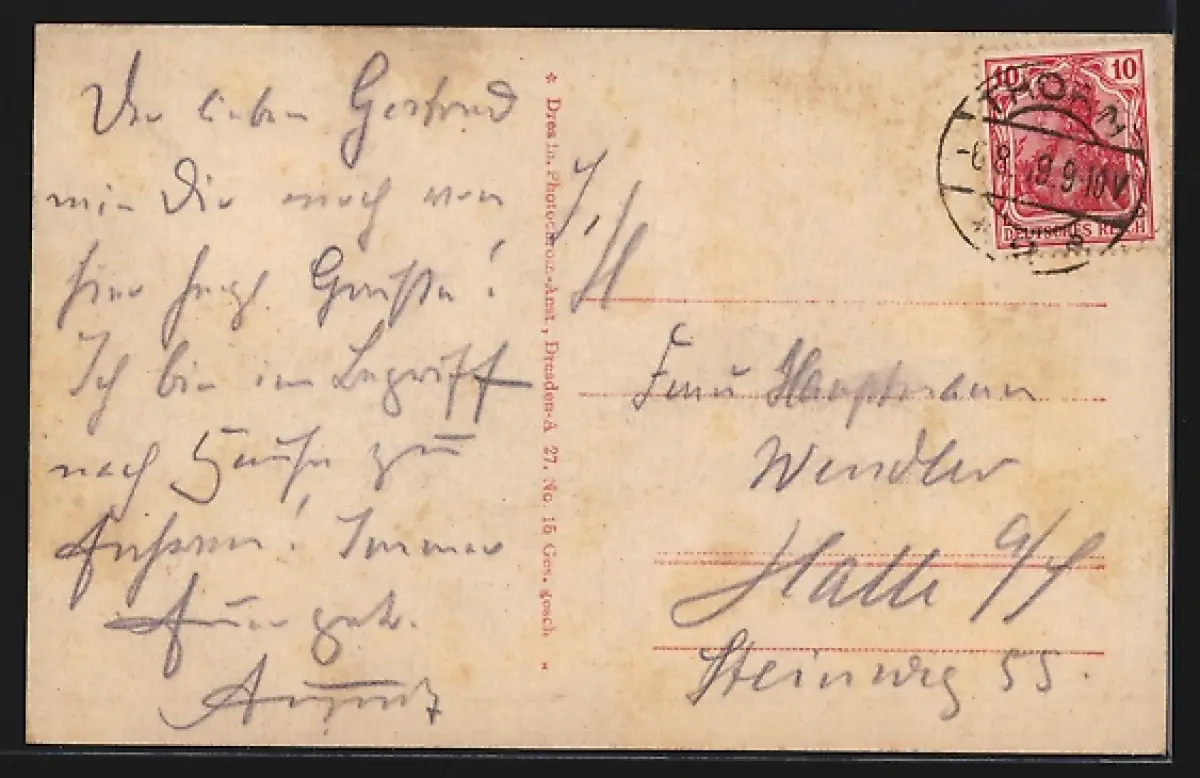 lieben Gertrud
Dir noch von
hier herzl. Grüße!
Ich bin im Begriff
nach Hause zu
fahren! Immer
Euer getr.
August
* Dresdn. Photochrom-Anst., Dresden-A 27. No. 15 Ges. gesch *
10 10
DEUTSCHES REICH
THORN
8. 9-10 V
Frau Hauptmann
Wendler
Halle a/S
Steinweg 55.